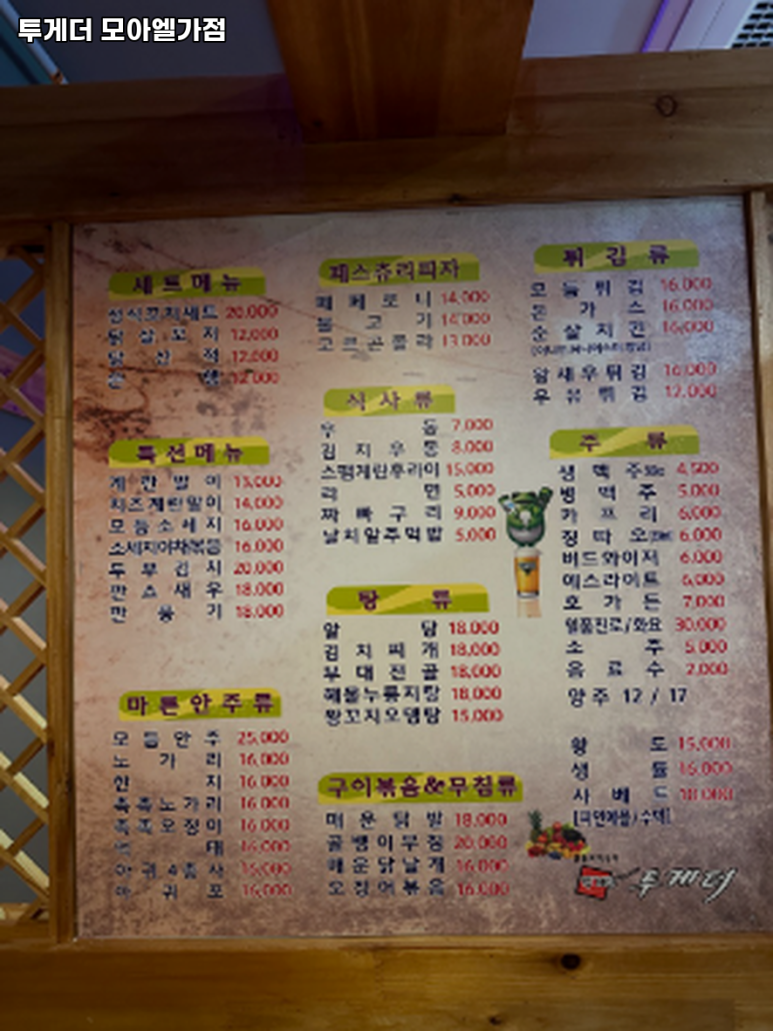 투게더 모아엘가점
세트메뉴
정식꼬치세트 20,000
닭살꼬치 12,000
닭산적 12,000
12,000
특선메뉴
계란말이 13,000
치즈계란말이 14,000
모듬소세지 16,000
소세지야채볶음 16,000
두부김치 20,000
깐쇼새우 18,000
깐풍기 18,000
마른안주류
모듬안주 25,000
노가리 16,000
한치 16,000
촉촉노가리 16,000
촉촉오징어 16,000
먹태 16,000
아귀
아귀포 16,000
패스츄리피자
페페로니 14,000
불고기 14,000
고르곤졸라 13,000
식사류
우동 7,000
김치우동 8,000
스팸계란후라이 15,000
라면 5,000
짜빠구리 9,000
날치알주먹밥 5,000
탕류
알탕 18,000
김치찌개 18,000
부대전골 18,000
해물누룽지탕 18,000
짱꼬치오뎅탕 15,000
구이볶음&무침류
매운닭발 18,000
골뱅이무침 20,000
매운닭날개 16,000
오징어볶음 16,000
튀김류
모듬튀김 16,000
돈가스 16,000
순살치킨 16,000
왕새우튀김 16,000
우유튀김 12,000
주류
생맥주 4,500
병맥주 5,000
카프리 6,000
칭따오 6,000
버드와이저 6,000
에스라이트 6,000
호가든 7,000
일품진로/화요 30,000
소주 5,000
음료수 2,000
양주 12 / 17
황도 15,000
생률 16,000
샤베트 18,000
[자연애플/수제]
투게더